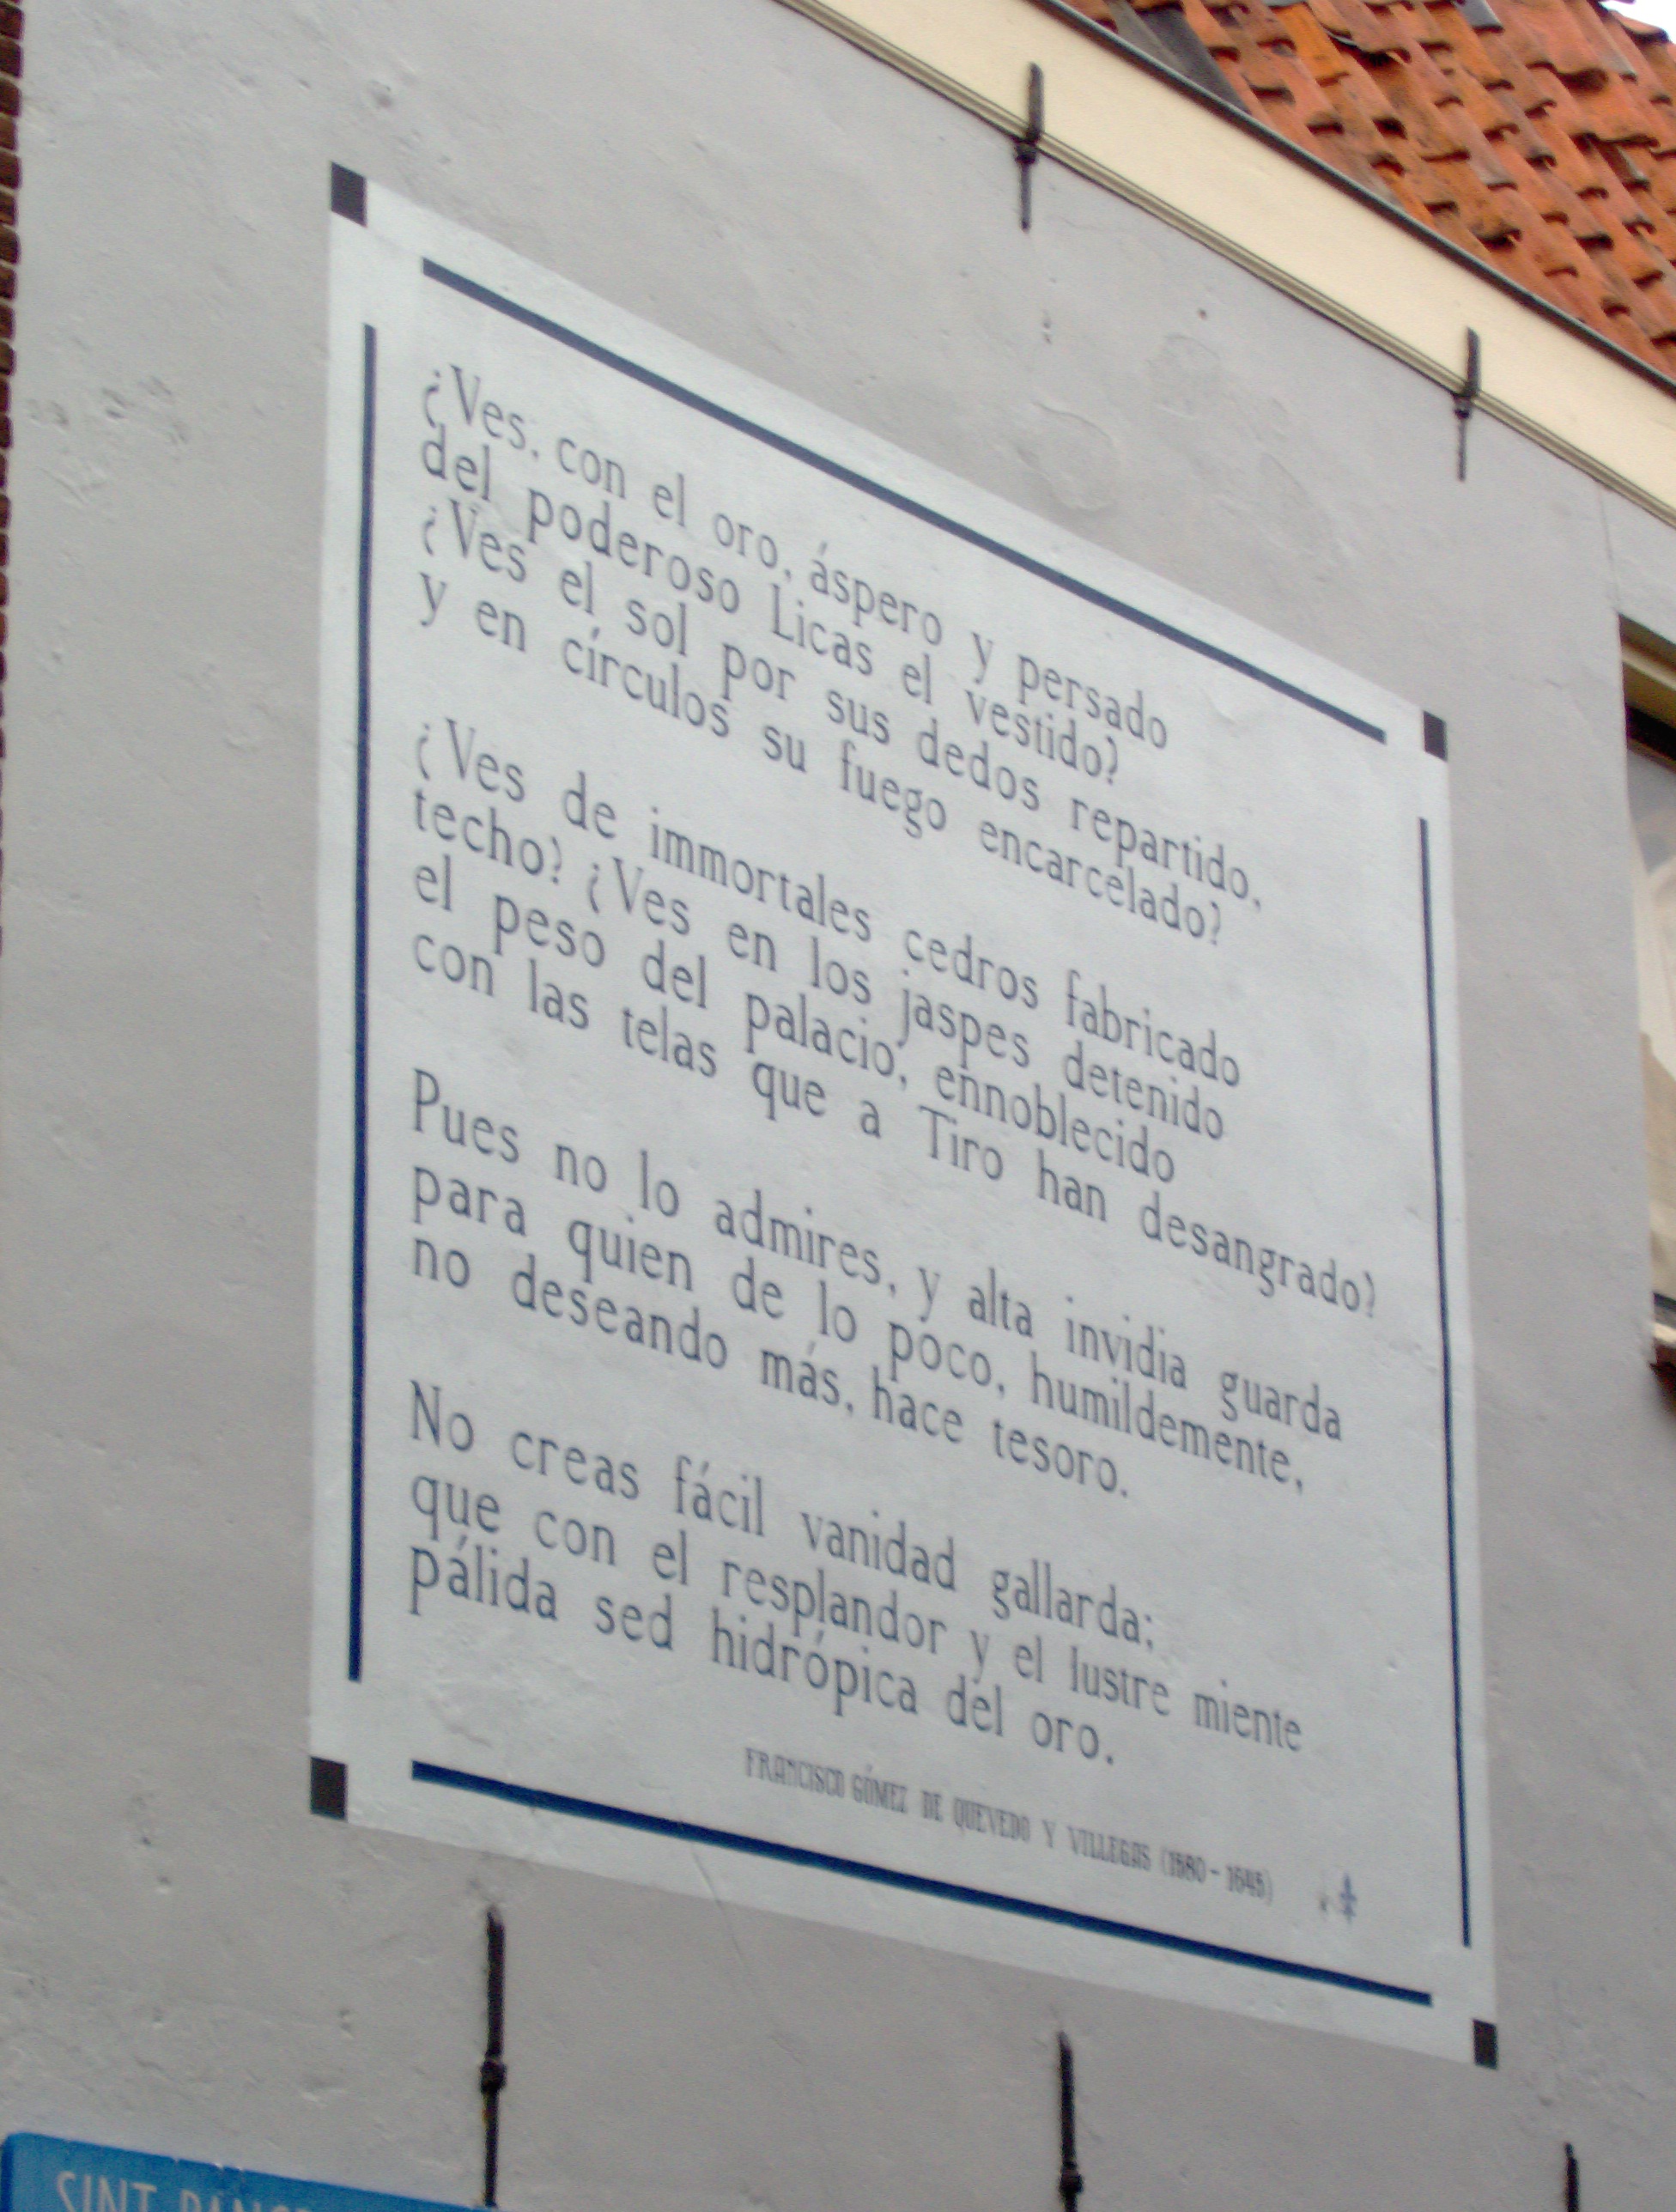 ¿Ves, con el oro, áspero y persado
del poderoso Licas el vestido?
¿Ves el sol por sus dedos repartido,
y en círculos su fuego encarcelado?
¿Ves de immortales cedros fabricado
techo? ¿Ves en los jaspes detenido
el peso del palacio, ennoblecido
con las telas que a Tiro han desangrado?
Pues no lo admires, y alta invidia guarda
para quien de lo poco, humildemente,
no deseando más, hace tesoro.
No creas fácil vanidad gallarda;
que con el resplandor y el lustre miente
pálida sed hidrópica del oro.
FRANCISCO GÓMEZ DE QUEVEDO Y VILLEGAS (1580 - 1645)
SINT